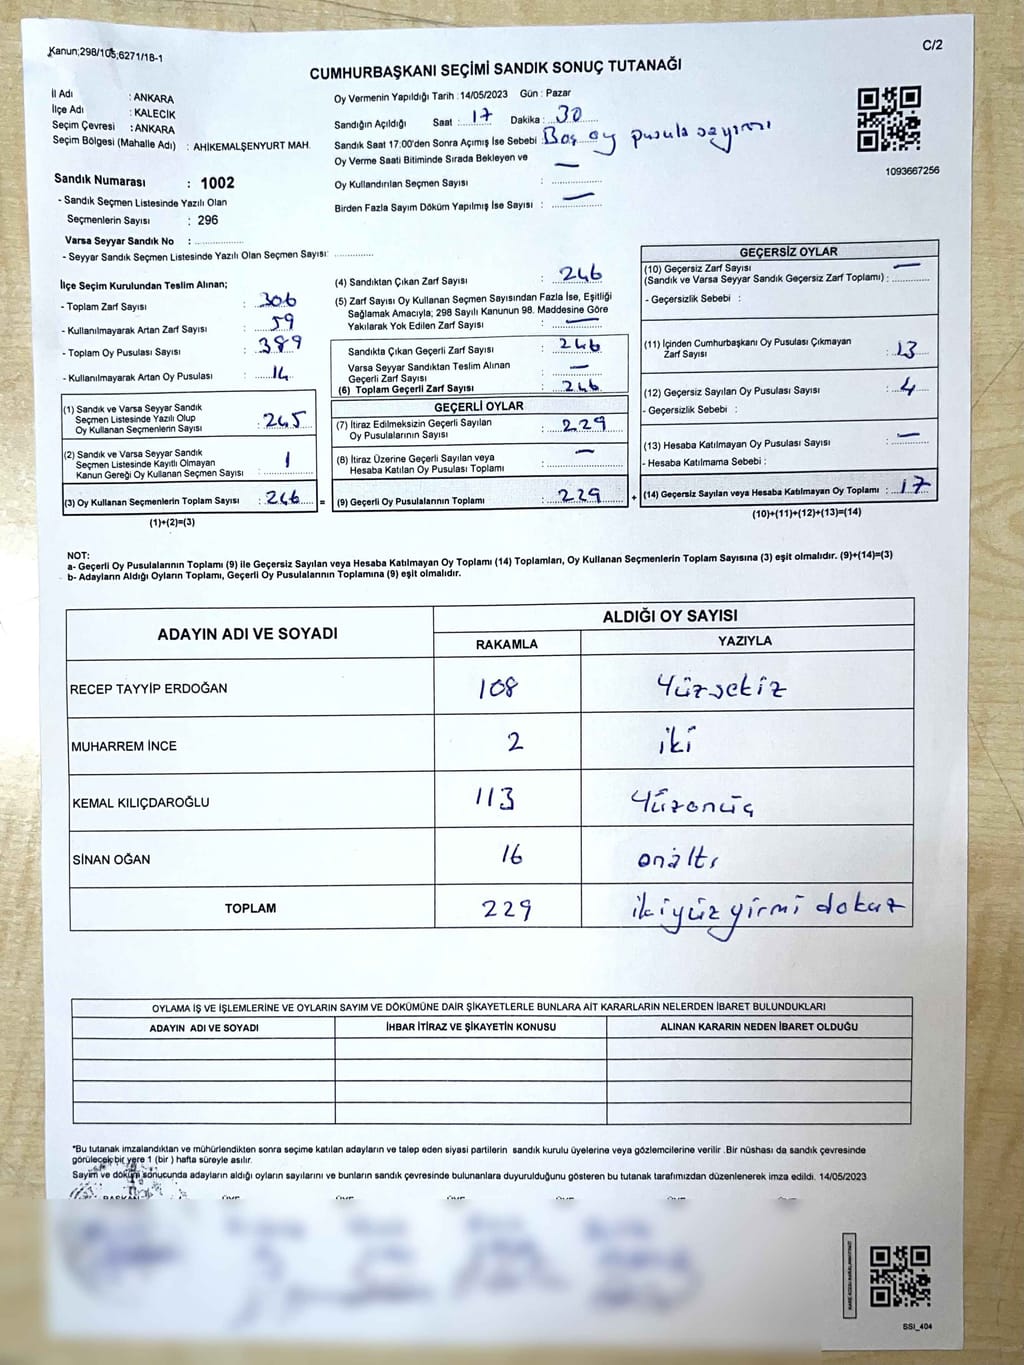 Kanun;298/105;6271/18-1
C/2
CUMHURBAŞKANI SEÇİMİ SANDIK SONUÇ TUTANAĞI
İl Adı : ANKARA
İlçe Adı : KALECİK
Seçim Çevresi : ANKARA
Seçim Bölgesi (Mahalle Adı) : AHİKEMALŞENYURT MAH.
Sandık Numarası : 1002
- Sandık Seçmen Listesinde Yazılı Olan
Seçmenlerin Sayısı : 296
Varsa Seyyar Sandık No :
- Seyyar Sandık Seçmen Listesinde Yazılı Olan Seçmen Sayısı:
Oy Vermenin Yapıldığı Tarih : 14/05/2023 Gün : Pazar
Sandığın Açıldığı Saat : 17 Dakika : 30
Sandık Saat 17.00'den Sonra Açımış İse Sebebi : Boş oy pusula sayımı
Oy Verme Saati Bitiminde Sırada Bekleyen ve —
Oy Kullandırılan Seçmen Sayısı :
Birden Fazla Sayım Döküm Yapılmış İse Sayısı : —
1093667256
İlçe Seçim Kurulundan Teslim Alınan;
- Toplam Zarf Sayısı : 306
- Kullanılmayarak Artan Zarf Sayısı : 59
- Toplam Oy Pusulası Sayısı : 389
- Kullanılmayarak Artan Oy Pusulası : 14
(1) Sandık ve Varsa Seyyar Sandık
Seçmen Listesinde Yazılı Olup
Oy Kullanan Seçmenlerin Sayısı : 245
(2) Sandık ve Varsa Seyyar Sandık
Seçmen Listesinde Kayıtlı Olmayan
Kanun Gereği Oy Kullanan Seçmen Sayısı : 1
(3) Oy Kullanan Seçmenlerin Toplam Sayısı : 246 =
(1)+(2)=(3)
(4) Sandıktan Çıkan Zarf Sayısı : 246
(5) Zarf Sayısı Oy Kullanan Seçmen Sayısından Fazla İse, Eşitliği
Sağlamak Amacıyla; 298 Sayılı Kanunun 98. Maddesine Göre
Yakılarak Yok Edilen Zarf Sayısı : —
Sandıkta Çıkan Geçerli Zarf Sayısı : 246
Varsa Seyyar Sandıktan Teslim Alınan
Geçerli Zarf Sayısı : —
(6) Toplam Geçerli Zarf Sayısı : 246
GEÇERLİ OYLAR
(7) İtiraz Edilmeksizin Geçerli Sayılan
Oy Pusulalarının Sayısı : 229
(8) İtiraz Üzerine Geçerli Sayılan veya
Hesaba Katılan Oy Pusulası Toplamı : —
(9) Geçerli Oy Pusulalarının Toplamı : 229 +
GEÇERSİZ OYLAR
(10) Geçersiz Zarf Sayısı —
(Sandık ve Varsa Seyyar Sandık Geçersiz Zarf Toplamı) :
- Geçersizlik Sebebi :
(11) İçinden Cumhurbaşkanı Oy Pusulası Çıkmayan
Zarf Sayısı : 13
(12) Geçersiz Sayılan Oy Pusulası Sayısı : 4
- Geçersizlik Sebebi :
(13) Hesaba Katılmayan Oy Pusulası Sayısı : —
- Hesaba Katılmama Sebebi :
(14) Geçersiz Sayılan veya Hesaba Katılmayan Oy Toplamı : 17
(10)+(11)+(12)+(13)=(14)
NOT:
a- Geçerli Oy Pusulalarının Toplamı (9) ile Geçersiz Sayılan veya Hesaba Katılmayan Oy Toplamı (14) Toplamları, Oy Kullanan Seçmenlerin Toplam Sayısına (3) eşit olmalıdır. (9)+(14)=(3)
b- Adayların Aldığı Oyların Toplamı, Geçerli Oy Pusulalarının Toplamına (9) eşit olmalıdır.
ADAYIN ADI VE SOYADI
ALDIĞI OY SAYISI
RAKAMLA YAZIYLA
RECEP TAYYİP ERDOĞAN 108 Yüzsekiz
MUHARREM İNCE 2 iki
KEMAL KILIÇDAROĞLU 113 Yüzonüç
SİNAN OĞAN 16 onaltı
TOPLAM 229 ikiyüz yirmi dokuz
OYLAMA İŞ VE İŞLEMLERİNE VE OYLARIN SAYIM VE DÖKÜMÜNE DAİR ŞİKAYETLERLE BUNLARA AİT KARARLARIN NELERDEN İBARET BULUNDUKLARI
ADAYIN ADI VE SOYADI İHBAR İTİRAZ VE ŞİKAYETİN KONUSU ALINAN KARARIN NEDEN İBARET OLDUĞU
"Bu tutanak imzalandıktan ve mühürlendikten sonra seçime katılan adayların ve talep eden siyasi partilerin sandık kurulu üyelerine veya gözlemcilerine verilir .Bir nüshası da sandık çevresinde
görülecek bir yere 1 (bir ) hafta süreyle asılır.
Sayım ve döküm sonucunda adayların aldığı oyların sayılarını ve bunların sandık çevresinde bulunanlara duyurulduğunu gösteren bu tutanak tarafımızdan düzenlenerek imza edildi. 14/05/2023
SSI_404